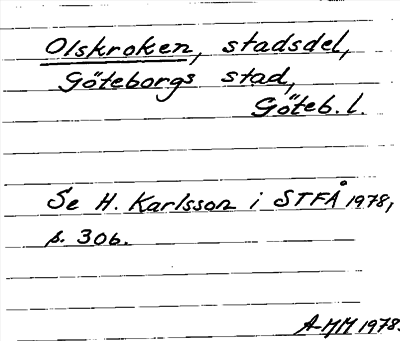 Olskroken, stadsdel,
Göteborgs stad,
Göteb. l.
Se H. Karlsson i STFÅ 1978,
s. 306.
A-MM 1978.